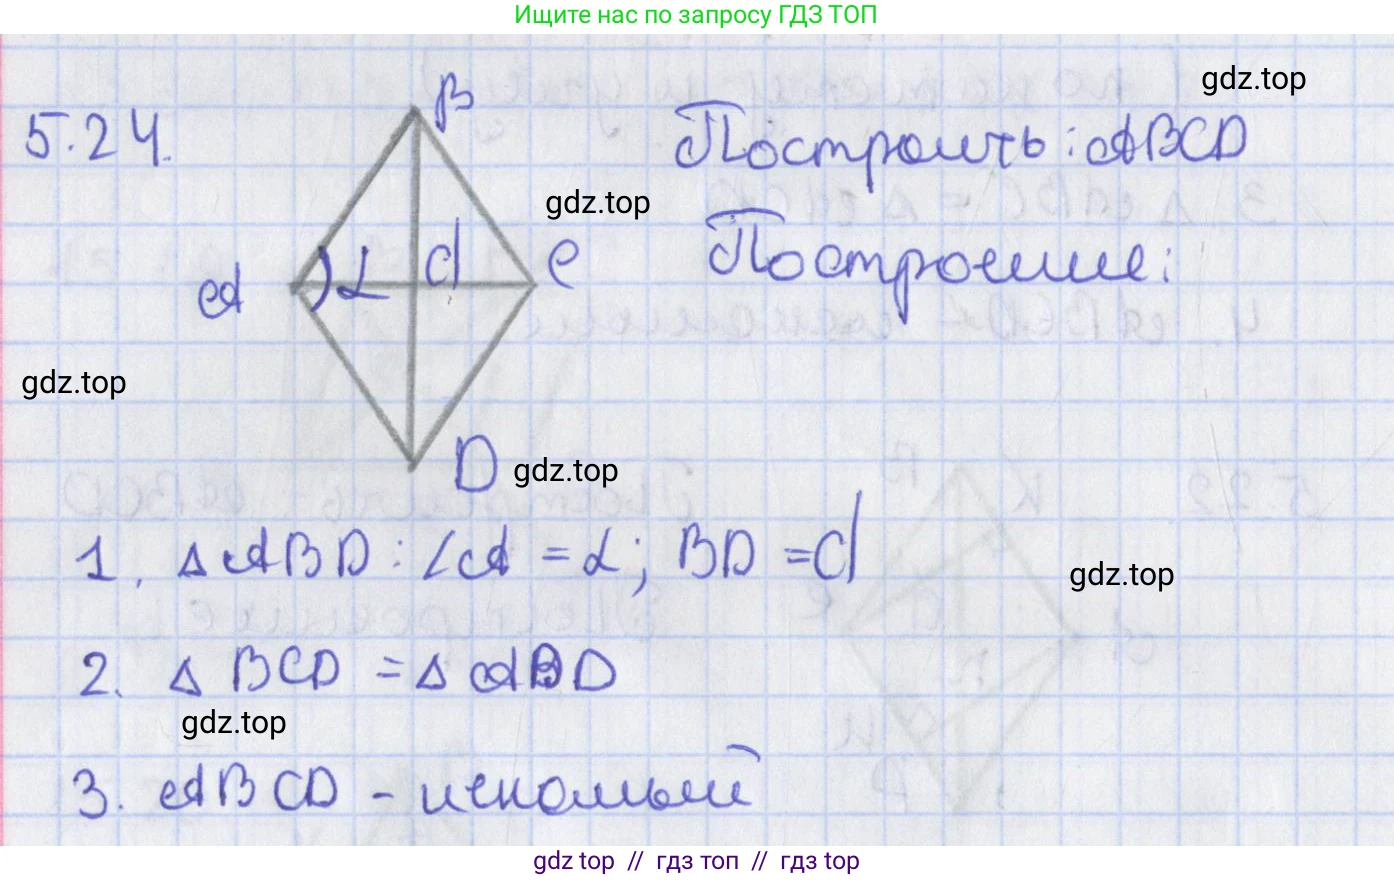 Ищите нас по запросу ГДЗ ТОП
gdz.top
5.24.
B
Построить: ABCD
gdz.top
Построение:
A
α
d
C
gdz.top
D
gdz.top
1. Δ ABD: ∠A = α; BD = d
gdz.top
2. Δ BCD = Δ ABD
gdz.top
3. ABCD - искомый
gdz top // гдз топ // гдз top